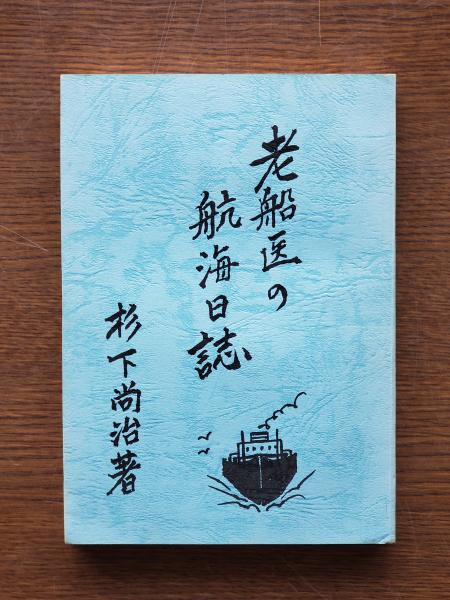 老船医の
航海日誌
杉下尚治著